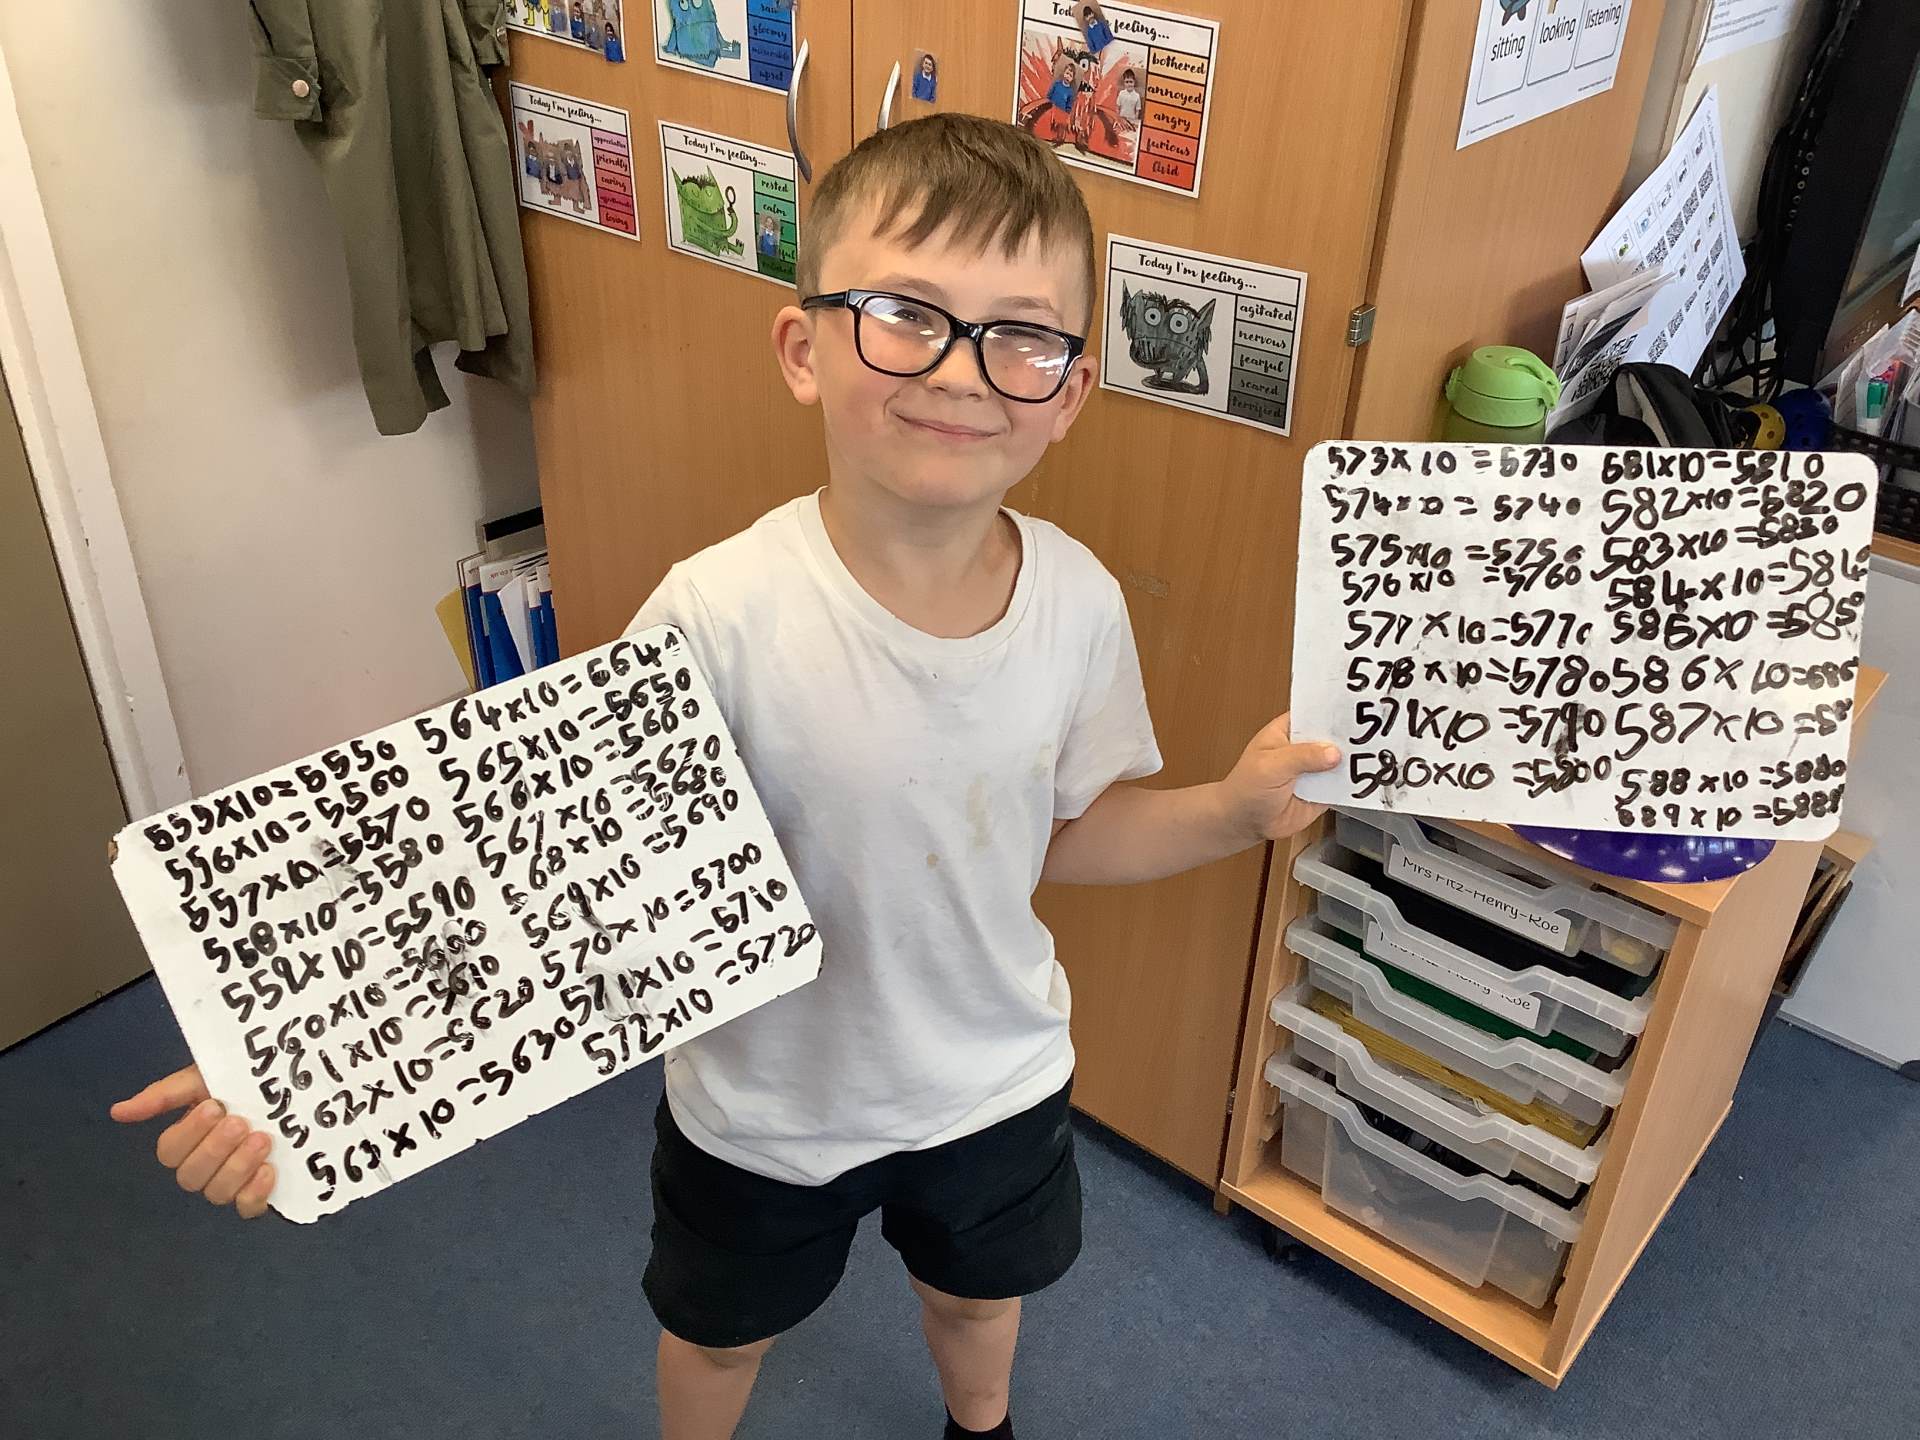 Today I'm feeling...
bothered
annoyed
angry
furious
livid
sitting
looking
listening
Today I'm feeling...
appreciative
friendly
caring
loving
Today I'm feeling...
rested
calm
Today I'm feeling...
agitated
nervous
fearful
scared
terrified
gloomy
miserable
upset
555x10=5550
556x10=5560
557x10=5570
558x10=5580
559x10=5590
560x10=5600
561x10=5610
562x10=5620
563x10=5630
564x10=5640
565x10=5650
566x10=5660
567x10=5670
568x10=5680
569x10=5690
570x10=5700
571x10=5710
572x10=5720
573x10=5730
574x10=5740
575x10=5750
576x10=5760
577x10=5770
578x10=5780
579x10=5790
580x10=5800
581x10=5810
582x10=5820
583x10=5830
584x10=5840
585x10=5850
586x10=586
587x10=58
588x10=5880
589x10=588
Mrs Fitz-Henry-Roe